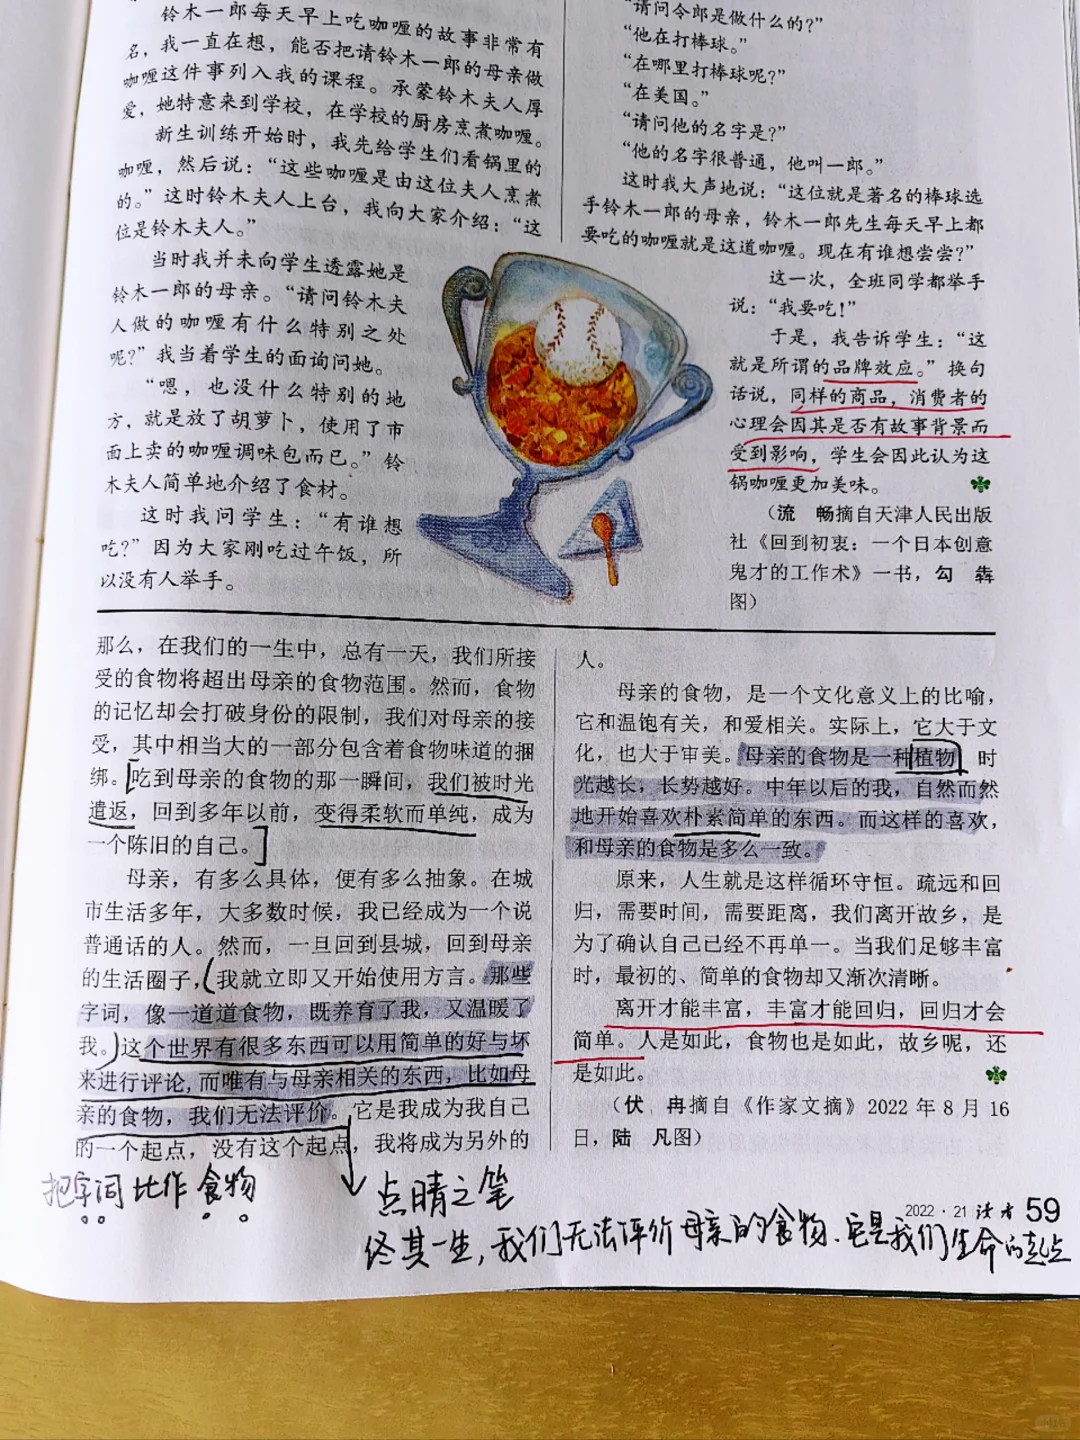 铃木一郎每天早上吃咖喱的故事非常有
名，我一直在想，能否把请铃木一郎的母亲做
咖喱这件事列入我的课程。承蒙铃木夫人厚
爱，她特意来到学校，在学校的厨房烹煮咖喱。
新生训练开始时，我先给学生们看锅里的
咖喱，然后说：“这些咖喱是由这位夫人烹煮
的。”这时铃木夫人上台，我向大家介绍：“这
位是铃木夫人。”
当时我并未向学生透露她是
铃木一郎的母亲。“请问铃木夫
人做的咖喱有什么特别之处
呢？”我当着学生的面询问她。
“嗯，也没什么特别的地
方，就是放了胡萝卜，使用了市
面上卖的咖喱调味包而已。”铃
木夫人简单地介绍了食材。
这时我问学生：“有谁想
吃？”因为大家刚吃过午饭，所
以没有人举手。
“请问令郎是做什么的？”
“他在打棒球。”
“在哪里打棒球呢？”
“在美国。”
“请问他的名字是？”
“他的名字很普通，他叫一郎。”
这时我大声地说：“这位就是著名的棒球选
手铃木一郎的母亲，铃木一郎先生每天早上都
要吃的咖喱就是这道咖喱。现在有谁想尝尝？”
这一次，全班同学都举手
说：“我要吃！”
于是，我告诉学生：“这
就是所谓的品牌效应。”换句
话说，同样的商品，消费者的
心理会因其是否有故事背景而
受到影响，学生会因此认为这
锅咖喱更加美味。
（流　畅摘自天津人民出版
社《回到初衷：一个日本创意
鬼才的工作术》一书，勾　犇
图）
那么，在我们的一生中，总有一天，我们所接
受的食物将超出母亲的食物范围。然而，食物
的记忆却会打破身份的限制，我们对母亲的接
受，其中相当大的一部分包含着食物味道的捆
绑。吃到母亲的食物的那一瞬间，我们被时光
遣返，回到多年以前，变得柔软而单纯，成为
一个陈旧的自己。
母亲，有多么具体，便有多么抽象。在城
市生活多年，大多数时候，我已经成为一个说
普通话的人。然而，一旦回到县城，回到母亲
的生活圈子，我就立即又开始使用方言。那些
字词，像一道道食物，既养育了我，又温暖了
我。这个世界有很多东西可以用简单的好与坏
来进行评论，而唯有与母亲相关的东西，比如母
亲的食物，我们无法评价。它是我成为我自己
的一个起点，没有这个起点，我将成为另外的
人。
母亲的食物，是一个文化意义上的比喻，
它和温饱有关，和爱相关。实际上，它大于文
化，也大于审美。母亲的食物是一种植物，时
光越长，长势越好。中年以后的我，自然而然
地开始喜欢朴素简单的东西。而这样的喜欢，
和母亲的食物是多么一致。
原来，人生就是这样循环守恒。疏远和回
归，需要时间，需要距离，我们离开故乡，是
为了确认自己已经不再单一。当我们足够丰富
时，最初的、简单的食物却又渐次清晰。
离开才能丰富，丰富才能回归，回归才会
简单。人是如此，食物也是如此，故乡呢，还
是如此。
（伏　冉摘自《作家文摘》2022年8月16
日，陆　凡图）
把字词比作食物
点睛之笔
终其一生，我们无法评价母亲的食物、它是我们生命的起点
2022·21 读者 59